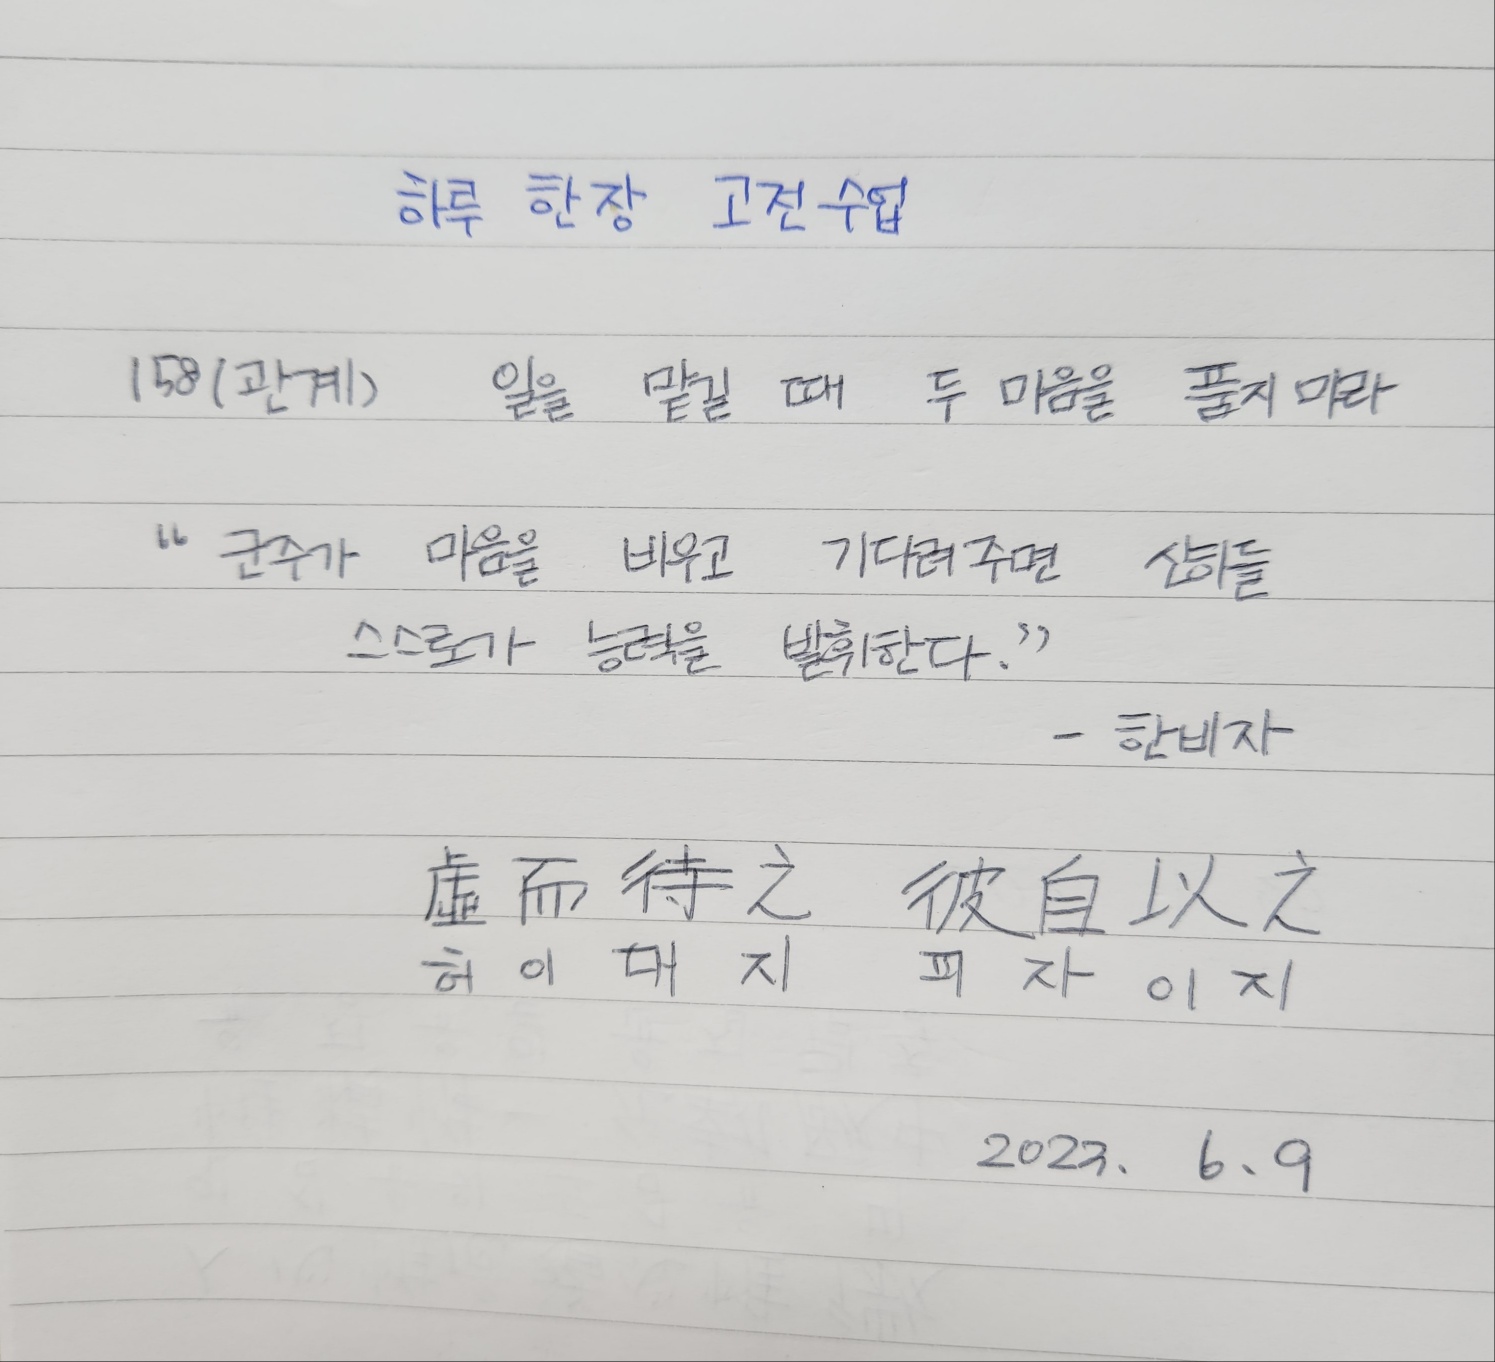 하루 한장 고전수업
158(관계) 일을 맡길 때 두 마음을 품지 마라
“군주가 마음을 비우고 기다려주면 신하들
스스로가 능력을 발휘한다.”
- 한비자
虛而待之 彼自以之
허이대지 피자이지
2023. 6.9